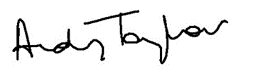 Andy Taylor